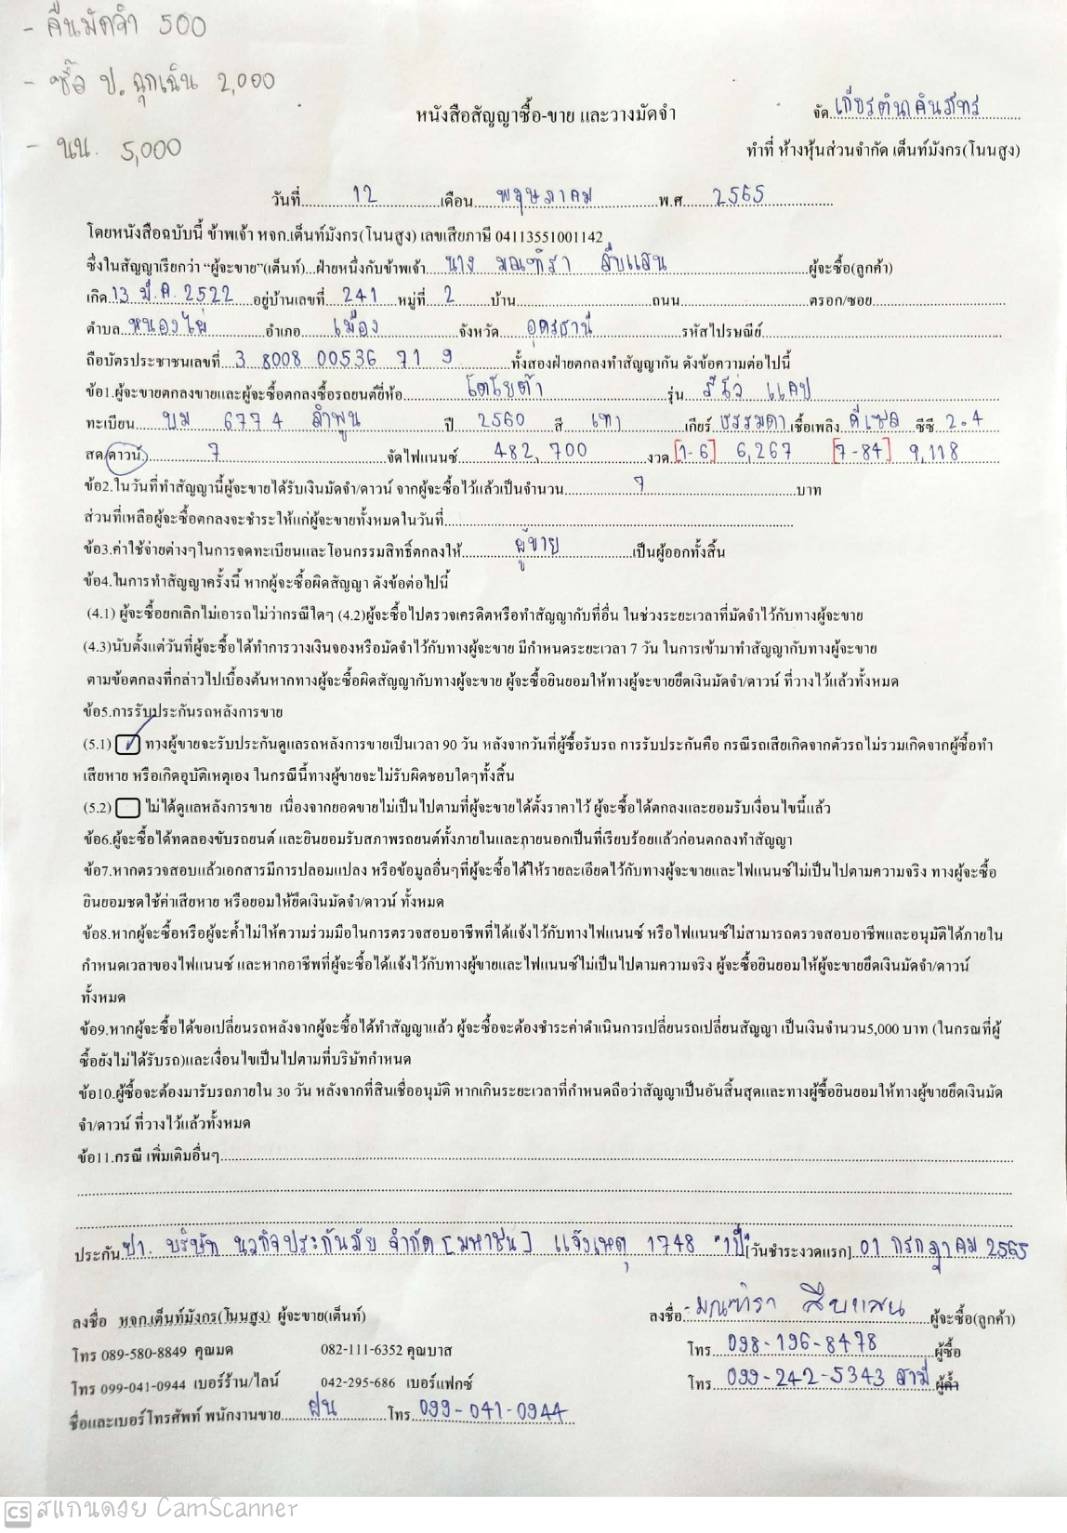 - คืนมัดจำ 500
- ซื้อ ป. ฉุกเฉิน 2,000
- นน. 5,000
หนังสือสัญญาซื้อ-ขาย และวางมัดจำ
จัด เกียรตินาคินภัทร
ทำที่ ห้างหุ้นส่วนจำกัด เต็นท์มังกร(โนนสูง)
วันที่ 12 เดือน พฤษภาคม พ.ศ 2565
โดยหนังสือฉบับนี้ ข้าพเจ้า หจก.เต็นท์มังกร(โนนสูง) เลขเสียภาษี 04113551001142
ซึ่งในสัญญาเรียกว่า "ผู้จะขาย"(เต็นท์)...ฝ่ายหนึ่งกับข้าพเจ้า นาง มณฑิรา สืบแสน ผู้จะซื้อ(ลูกค้า)
เกิด 13 มี.ค. 2522 อยู่บ้านเลขที่ 241 หมู่ที่ 2 บ้าน ถนน ตรอก/ซอย
ตำบล หนองไผ่ อำเภอ เมือง จังหวัด อุดรธานี รหัสไปรษณีย์
ถือบัตรประชาชนเลขที่ 3 8008 00536 71 9 ทั้งสองฝ่ายตกลงทำสัญญากัน ดังข้อความต่อไปนี้
ข้อ1.ผู้จะขายตกลงขายและผู้จะซื้อตกลงซื้อรถยนต์ยี่ห้อ โตโยต้า รุ่น รีโว่ แคป
ทะเบียน บม 6774 ลำพูน ปี 2560 สี เทา เกียร์ ธรรมดา เชื้อเพลิง ดีเซล ซีซี. 2.4
สด/ดาวน์ 7 จัดไฟแนนซ์ 482,700 งวด [1-6] 6,267 [7-84] 9,118
ข้อ2.ในวันที่ทำสัญญานี้ผู้จะขายได้รับเงินมัดจำ/ดาวน์ จากผู้จะซื้อไว้แล้วเป็นจำนวน 7 บาท
ส่วนที่เหลือผู้จะซื้อตกลงจะชำระให้แก่ผู้จะขายทั้งหมดในวันที่
ข้อ3.ค่าใช้จ่ายต่างๆในการจดทะเบียนและโอนกรรมสิทธิ์ตกลงให้ ผู้ขาย เป็นผู้ออกทั้งสิ้น
ข้อ4.ในการทำสัญญาครั้งนี้ หากผู้จะซื้อผิดสัญญา ดังข้อต่อไปนี้
(4.1) ผู้จะซื้อยกเลิกไม่เอารถไม่ว่ากรณีใดๆ (4.2)ผู้จะซื้อไปตรวจเครดิตหรือทำสัญญากับที่อื่น ในช่วงระยะเวลาที่มัดจำไว้กับทางผู้จะขาย
(4.3)นับตั้งแต่วันที่ผู้จะซื้อได้ทำการวางเงินจองหรือมัดจำไว้กับทางผู้จะขาย มีกำหนดระยะเวลา 7 วัน ในการเข้ามาทำสัญญากับทางผู้จะขาย
ตามข้อตกลงที่กล่าวไปเบื้องต้นหากทางผู้จะซื้อผิดสัญญากับทางผู้จะขาย ผู้จะซื้อยินยอมให้ทางผู้จะขายยึดเงินมัดจำ/ดาวน์ ที่วางไว้แล้วทั้งหมด
ข้อ5.การรับประกันรถหลังการขาย
(5.1) ทางผู้ขายจะรับประกันดูแลรถหลังการขายเป็นเวลา 90 วัน หลังจากวันที่ผู้ซื้อรับรถ การรับประกันคือ กรณีรถเสียเกิดจากตัวรถไม่รวมเกิดจากผู้ซื้อทำ
เสียหาย หรือเกิดอุบัติเหตุเอง ในกรณีนี้ทางผู้ขายจะไม่รับผิดชอบใดๆทั้งสิ้น
(5.2) ไม่ได้ดูแลหลังการขาย เนื่องจากยอดขายไม่เป็นไปตามที่ผู้จะขายได้ตั้งราคาไว้ ผู้จะซื้อได้ตกลงและยอมรับเงื่อนไขนี้แล้ว
ข้อ6.ผู้จะซื้อได้ทดลองขับรถยนต์ และยินยอมรับสภาพรถยนต์ทั้งภายในและภายนอกเป็นที่เรียบร้อยแล้วก่อนตกลงทำสัญญา
ข้อ7.หากตรวจสอบแล้วเอกสารมีการปลอมแปลง หรือข้อมูลอื่นๆที่ผู้จะซื้อได้ให้รายละเอียดไว้กับทางผู้จะขายและไฟแนนซ์ไม่เป็นไปตามความจริง ทางผู้จะซื้อ
ยินยอมชดใช้ค่าเสียหาย หรือยอมให้ยึดเงินมัดจำ/ดาวน์ ทั้งหมด
ข้อ8.หากผู้จะซื้อหรือผู้จะค้ำไม่ให้ความร่วมมือในการตรวจสอบอาชีพที่ได้แจ้งไว้กับทางไฟแนนซ์ หรือไฟแนนซ์ไม่สามารถตรวจสอบอาชีพและอนุมัติได้ภายใน
กำหนดเวลาของไฟแนนซ์ และหากอาชีพที่ผู้จะซื้อได้แจ้งไว้กับทางผู้ขายและไฟแนนซ์ไม่เป็นไปตามความจริง ผู้จะซื้อยินยอมให้ผู้จะขายยึดเงินมัดจำ/ดาวน์
ทั้งหมด
ข้อ9.หากผู้จะซื้อได้ขอเปลี่ยนรถหลังจากผู้จะซื้อได้ทำสัญญาแล้ว ผู้จะซื้อจะต้องชำระค่าดำเนินการเปลี่ยนรถเปลี่ยนสัญญา เป็นเงินจำนวน5,000 บาท (ในกรณที่ผู้
ซื้อยังไม่ได้รับรถ)และเงื่อนไขเป็นไปตามที่บริษัทกำหนด
ข้อ10.ผู้ซื้อจะต้องมารับรถภายใน 30 วัน หลังจากที่สินเชื่ออนุมัติ หากเกินระยะเวลาที่กำหนดถือว่าสัญญาเป็นอันสิ้นสุดและทางผู้ซื้อยินยอมให้ทางผู้ขายยึดเงินมัด
จำ/ดาวน์ ที่วางไว้แล้วทั้งหมด
ข้อ11.กรณี เพิ่มเติมอื่นๆ
ประกัน ป1. บริษัท นวกิจประกันภัย จำกัด [มหาชน] แจ้งเหตุ 1748 "1ปี" [วันชำระงวดแรก] 01 กรกฎาคม 2565
ลงชื่อ หจก.เต็นท์มังกร(โนนสูง) ผู้จะขาย(เต็นท์) ลงชื่อ มณฑิรา สืบแสน ผู้จะซื้อ(ลูกค้า)
โทร 089-580-8849 คุณมด 082-111-6352 คุณบาส โทร. 098-196-8478 ผู้ซื้อ
โทร 099-041-0944 เบอร์ร้าน/ไลน์ 042-295-686 เบอร์แฟกซ์ โทร. 099-242-5343 สามี ผู้ค้ำ
ชื่อและเบอร์โทรศัพท์ พนักงานขาย ฝน โทร 099-041-0944
CS สแกนด้วย CamScanner